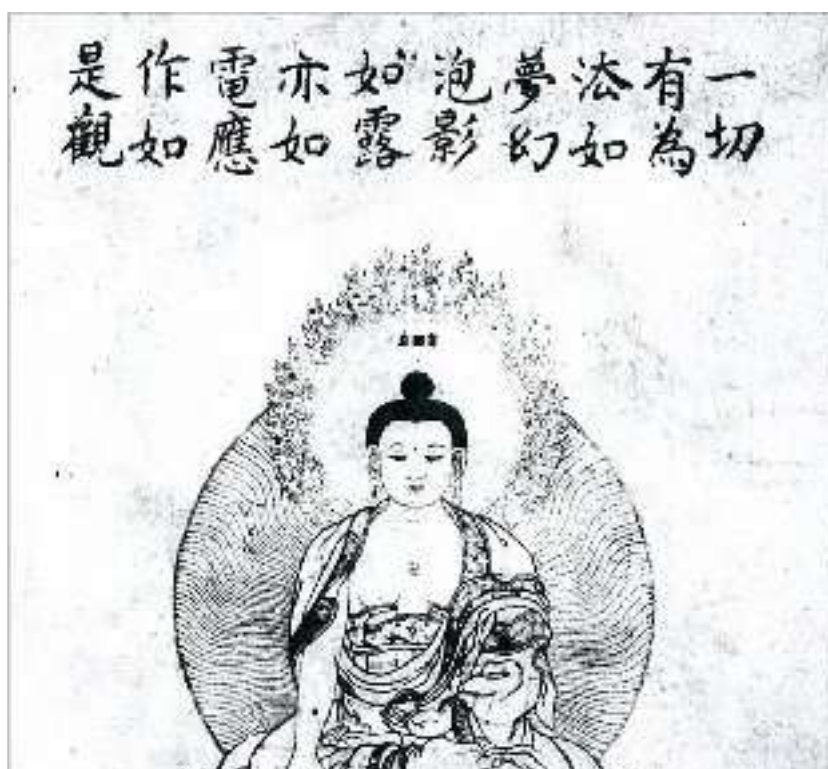 一切
有為
法如
夢幻
泡影
如露
亦如
電應
作如
是觀